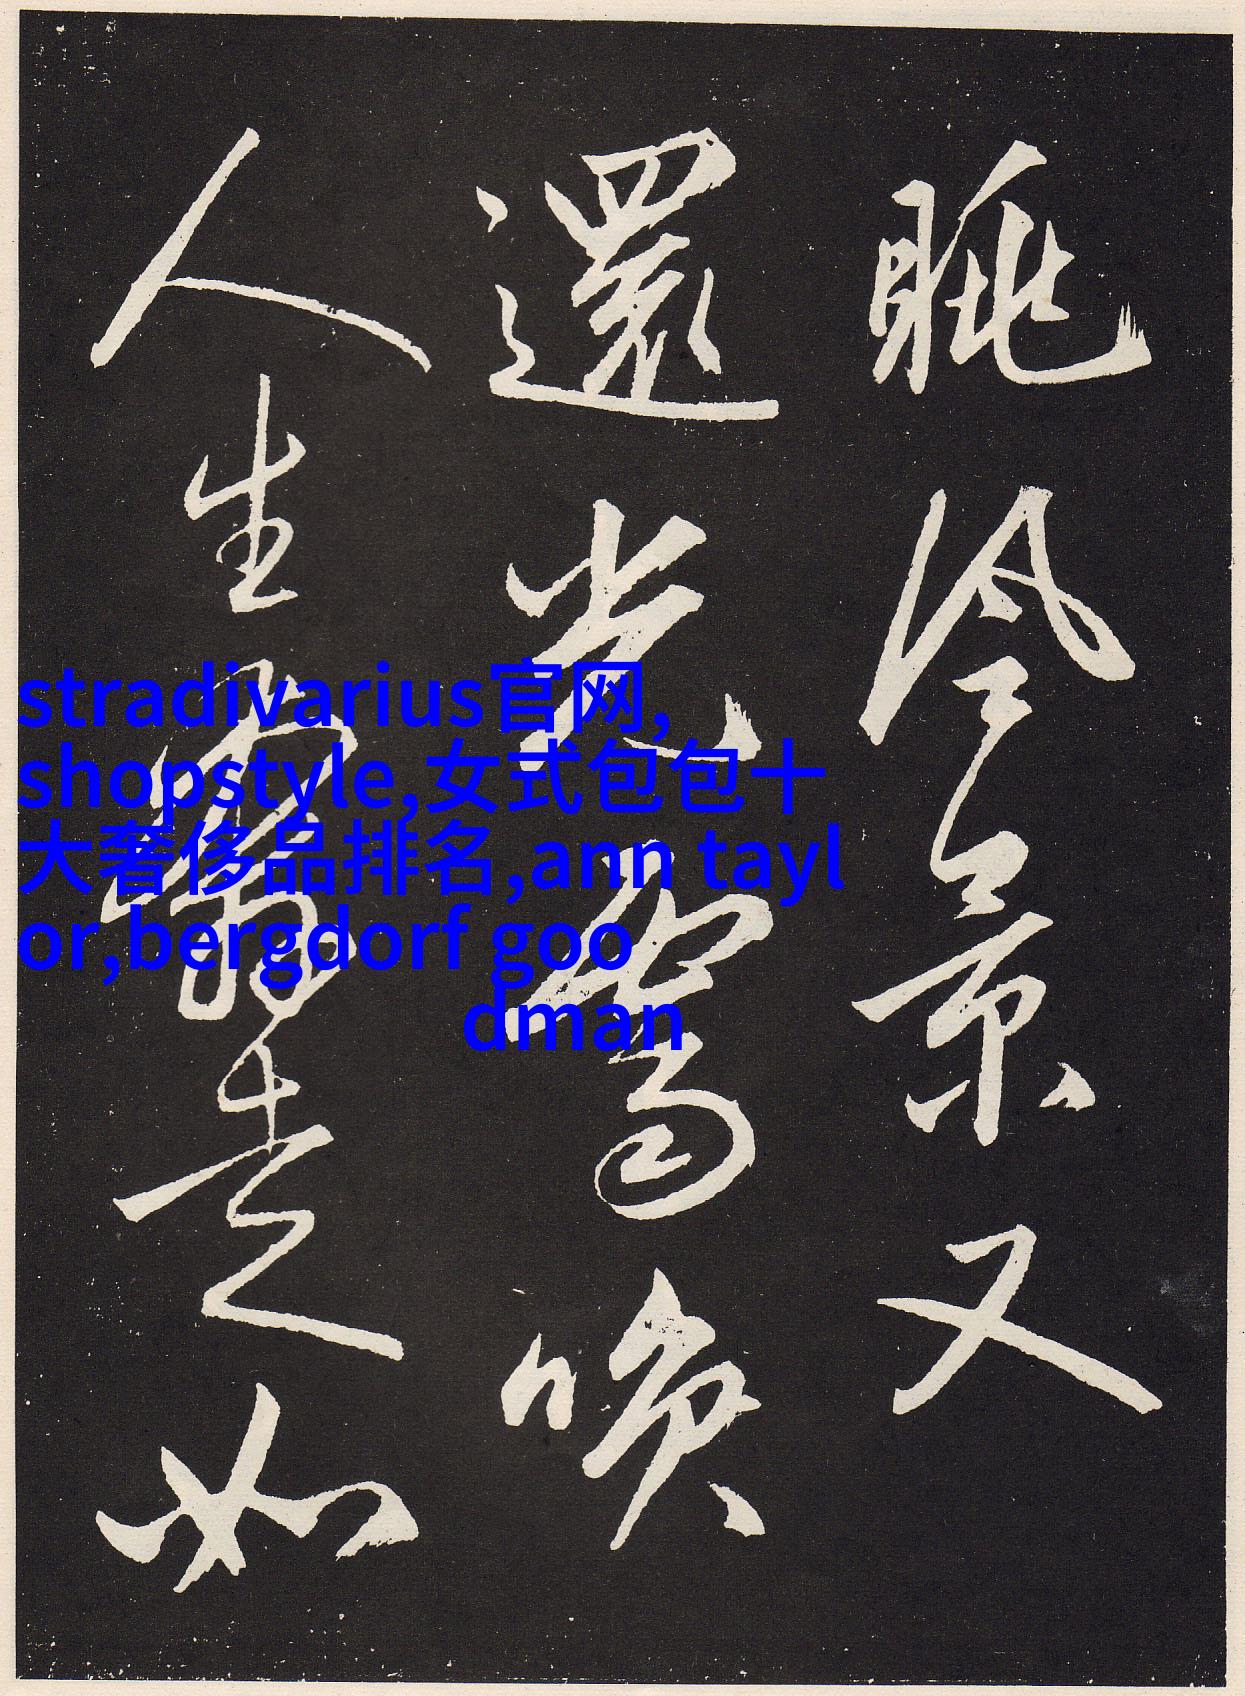 眺冷景又
還光喚
人生走如
stradivarius官网,
shopstyle,女式包包十
大奢侈品排名,ann tayl
or,bergdorf goo
dman